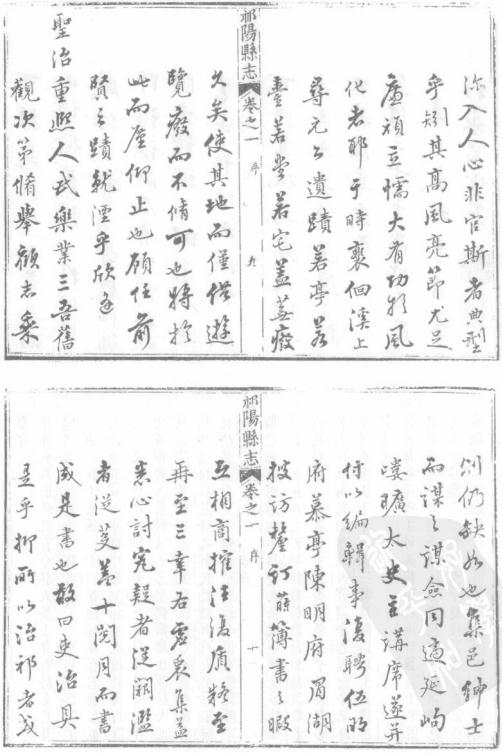 深入人心非官斯者典型
乎矧其高風亮節尤足
廉頑立懦大有功於風
化者耶于時裵佪溪上
尋元公遺蹟若亭若
臺若堂若宅蓋蕪癈
祁陽縣志 卷之一 序 九
久矣使其地而僅供遊
覽癈而不脩可也將於
此而屋仰止也顧任前
賢之蹟就湮乎欣逢
聖治重熙人民樂業三吾舊
觀次第脩舉顧志乘
則仍缺如也集邑紳士
而謀之謀僉同適延
嘍曠太史主講席遂并
付以編輯事復聘伍明
府慕亭陳明府渭湖
披訪釐訂蒔簿書之暇
祁陽縣志 卷之一 序 十
互相商搉往復質疑至
再至三幸右虚衷集益
悉心討究疑者從闕濫
者從芟葢十閱月而書
成是書也敢曰吏治具
是乎抑所以治祁者或